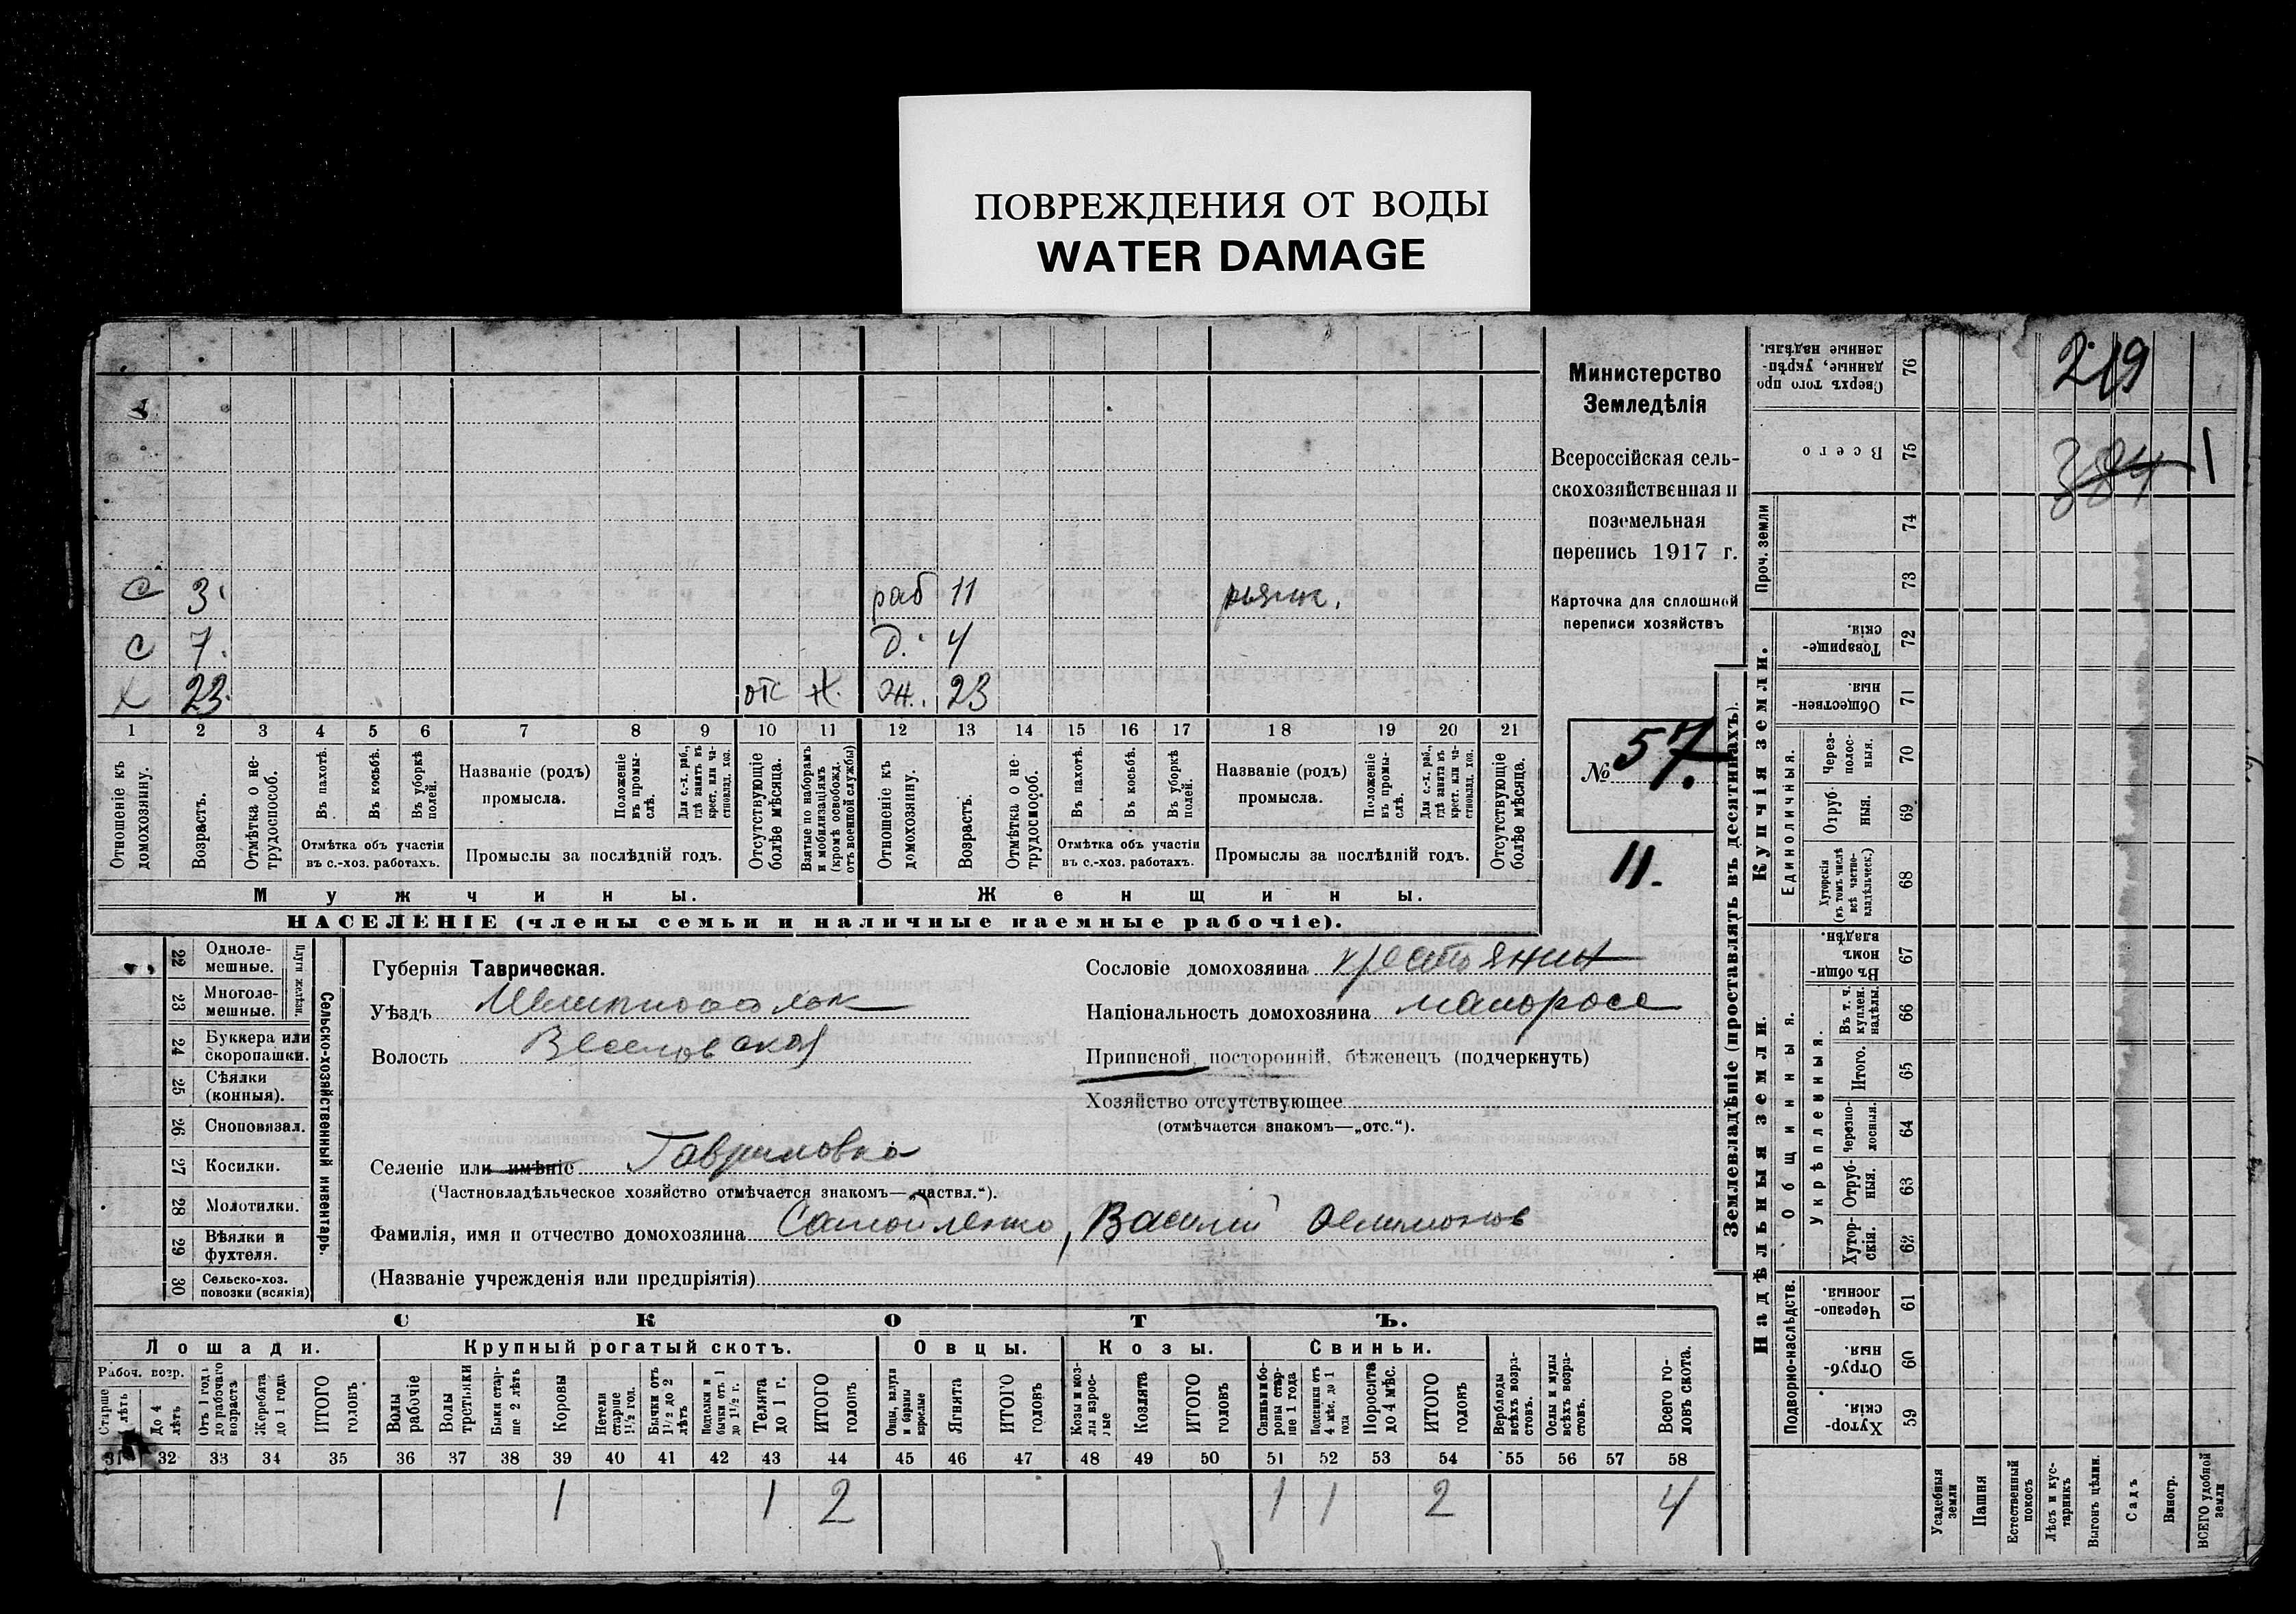 ПОВРЕЖДЕНИЯ ОТ ВОДЫ
WATER DAMAGE
Министерство
Земледѣлія
Всероссійская сель-
скохозяйственная и
поземельная
перепись 1917 г.
Карточка для сплошной
переписи хозяйствъ
№ 57.
11.
219
384
1
С 3. раб 11
С 7. Д. 4
Х 23. отс ж. 23
1 2 3 4 5 6 7 8 9 10 11 12 13 14 15 16 17 18 19 20 21
Отношеніе къ домохозяину.
Возрастъ.
Отмѣтка о не-трудоспособ.
Въ пахотѣ.
Въ косьбѣ.
Въ уборкѣ полей.
Отмѣтка объ участіи
въ с.-хоз. работахъ.
Названіе (родъ)
промысла.
Положеніе въ промы-слѣ.
Для с.-х. раб., гдѣ занятъ въ крест. или ча-стновлад. хоз.
Промыслы за послѣдній годъ.
Отсутствующіе болѣе мѣсяца.
Взятые по наборамъ и мобилизаціямъ (кромѣ освобожд. отъ военной службы)
Отношеніе къ домохозяину.
Возрастъ.
Отмѣтка о не-трудоспособ.
Въ пахотѣ.
Въ косьбѣ.
Въ уборкѣ полей.
Отмѣтка объ участіи
въ с.-хоз. работахъ.
Названіе (родъ)
промысла.
Положеніе въ промы-слѣ.
Для с.-х. раб., гдѣ занята въ крест. или ча-стновлад. хоз.
Промыслы за послѣдній годъ.
Отсутствующіе болѣе мѣсяца.
Мужчины.
Женщины.
НАСЕЛЕНІЕ (члены семьи и наличные наемные рабочіе).
Сельско-хозяйственный инвентарь.
Плуги желѣзн.
22 Одноле-мешные.
23 Многоле-мешные.
24 Буккера или скоропашки.
25 Сѣялки (конныя).
26 Сноповязал.
27 Косилки.
28 Молотилки.
29 Вѣялки и фухтеля.
30 Сельско-хоз. повозки (всякія)
Губернія Таврическая.
Уѣздъ Мелитопольск
Волость Веселовская
Селеніе или имѣніе Гавриловка
(Частновладѣльческое хозяйство отмѣчается знакомъ—„частвл.“).
Фамилія, имя и отчество домохозяина Самойленко, Василий
(Названіе учрежденія или предпріятія)
Сословіе домохозяина крестьянин
Національность домохозяина малоросс
Приписной, посторонній, бѣженецъ (подчеркнуть)
Хозяйство отсутствующее
(отмѣчается знакомъ—„отс.“).
СКОТЪ.
Лошади.
Крупный рогатый скотъ.
Овцы.
Козы.
Свиньи.
Рабоч. возр.
Старше 4 лѣтъ
До 4 лѣтъ
Отъ 1 года до рабочаго возраста
Жеребята до 1 года
ИТОГО головъ
Волы рабочіе
Волы третьяки
Быки стар-ше 2 лѣтъ
Коровы
Нетели старше 1½ год.
Бычки отъ 1½ до 2 лѣтъ
Подтелки и бычки отъ 1 до 1½ г.
Телята до 1 г.
ИТОГО головъ
Овцы, валухи и бараны взрослые
Ягнята
ИТОГО головъ
Козы и коз-лы взрос-лые
Козлята
ИТОГО головъ
Свиньи и бо-ровы стар-ше 1 года
Подсвинки отъ 4 мѣс. до 1 года
Поросята до 4 мѣс.
ИТОГО головъ
Верблюды всѣхъ возра-стовъ.
Ослы и мулы всѣхъ возра-стовъ.
Всего го-ловъ скота.
31 32 33 34 35 36 37 38 39 40 41 42 43 44 45 46 47 48 49 50 51 52 53 54 55 56 57 58
1 1 2 1 1 2 4
Землевладѣніе (проставлять въ десятинахъ).
Надѣльныя земли.
Купчія земли.
Проч. земли
Подворно-наслѣдств.
Общинныя.
Укрѣпленныя.
Единоличныя.
Сверхъ того про-данные, укрѣп-ленные надѣлы. 76
Всего 75
74
73
Товарище-скія. 72
Обществен-ныя. 71
Через-полос-ныя. 70
Отруб-ныя. 69
Хуторскія (въ томъ числѣ всѣ частно-владѣльческ.) 68
Въ общин-номъ владѣн. 67
Въ т. ч. куплен. надѣлы. 66
Итого. 65
Черезпо-лосныя. 64
Отруб-ныя. 63
Хутор-скія. 62
Черезпо-лосныя. 61
Отруб-ныя. 60
Хутор-скія. 59
Усадебныя земли
Пашня
Естественный покосъ
Лѣсъ и кус-тарникъ
Выгонъ цѣлин.
Садъ
Виногр.
ВСЕГО удобной земли